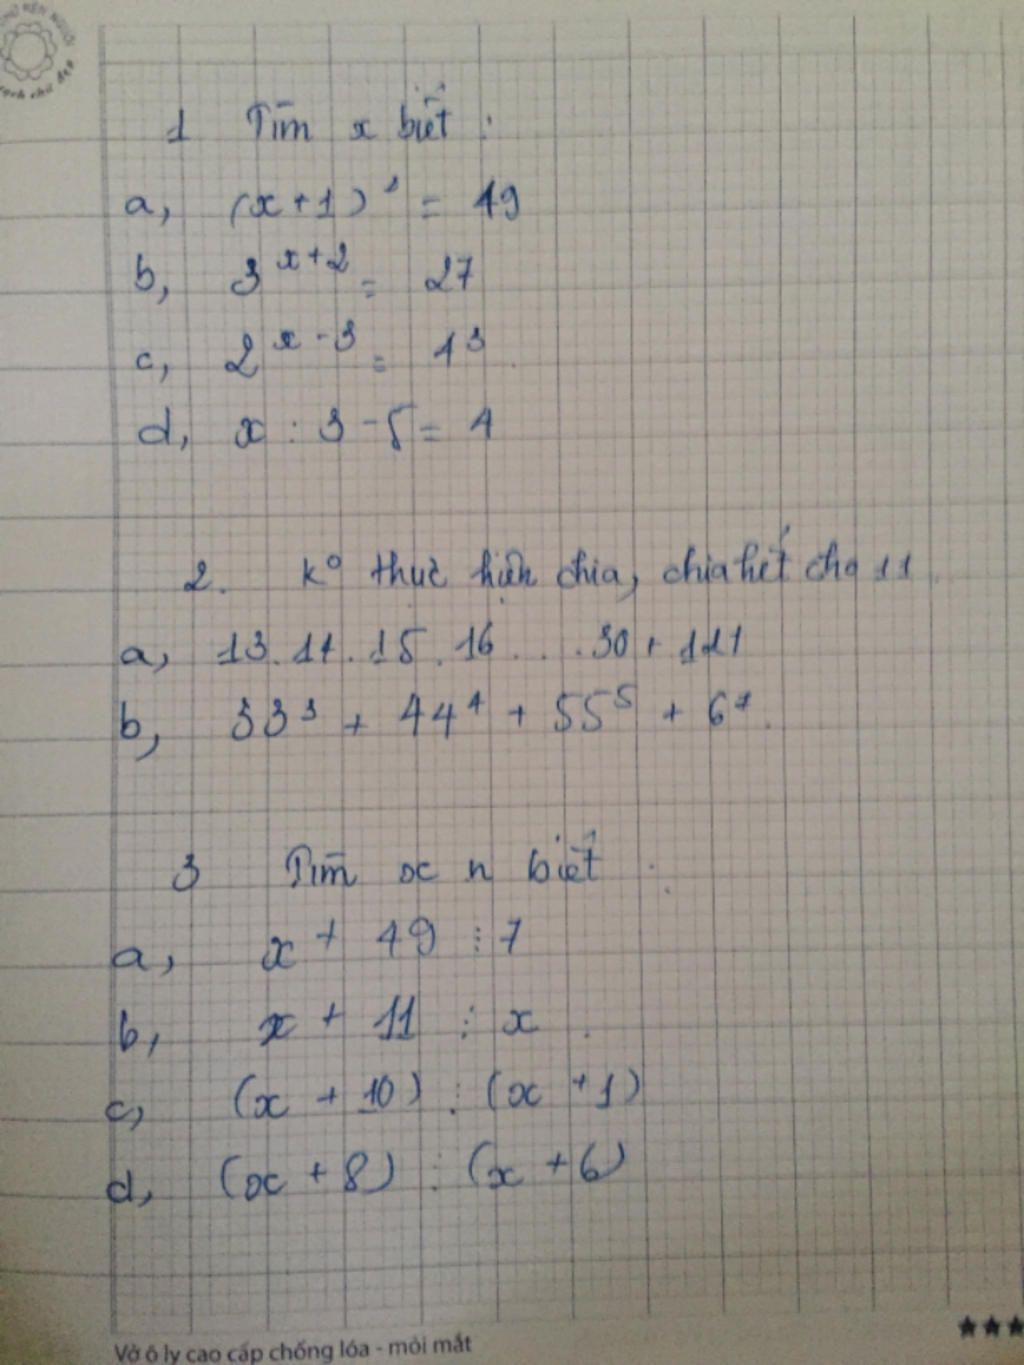 1 Tìm x biết :
a, (x+1)² = 49
b, 3^x+2 = 27
c, 2^x-3 = 1³
d, x : 3 - 5 = 4
2. K° thực hiện chia, chia hết cho 11
a, 13.14.15.16....30 + 121
b, 33³ + 44⁴ + 55⁵ + 6⁷.
3 Tìm x n biết :
a, x + 49 ⋮ 7
b, x + 11 ⋮ x .
c, (x + 10) ⋮ (x + 1)
d, (x + 8) ⋮ (x + 6)
Vở ô ly cao cấp chống lóa - mỏi mắt